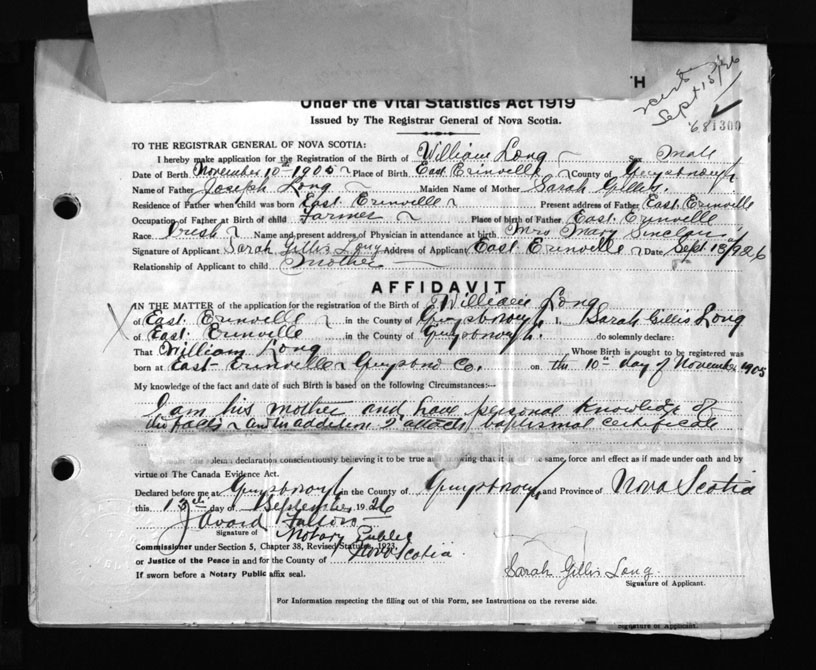 H
Under the Vital Statistics Act 1919
Issued by The Registrar General of Nova Scotia.
Sept 15/26
681300
TO THE REGISTRAR GENERAL OF NOVA SCOTIA:
I hereby make application for the Registration of the Birth of William Long Sex Male
Date of Berth November 10th 1905 Place of Birth East Erinville County of Guysborough
Name of Father Joseph Long Maiden Name of Mother Sarah Gillis
Residence of Father when child was born East Erinville Present address of Father East Erinville
Occupation of Father at Birth of child Farmer Place of birth of Father East Erinville
Race Irish Name and present address of Physician in attendance at birth Mrs Mary Sinclair
Signature of Applicant Sarah Gillis Long Address of Applicant East Erinville Date Sept 13/1926
Relationship of Applicant to child mother
AFFIDAVIT
IN THE MATTER of the application for the registration of the Birth of William Long
of East Erinville in the County of Guysborough I, Sarah Gillis Long
of East Erinville in the County of Guysborough. do solemnly declare:
That William Long Whose Birth is sought to be registered was
born at East Erinville Guysboro Co. on the 10th day of November 1905
My knowledge of the fact and date of such Birth is based on the following Circumstances:—
I am his mother and have personal knowledge of
the facts and in addition I attach baptismal certificate
solemn declaration conscientiously believing it to be true and knowing that it is of the same force and effect as if made under oath and by
virtue of The Canada Evidence Act.
Declared before me at Guysborough in the County of Guysborough and Province of Nova Scotia
this 13th day of September 1926
Signature of Notary Public
Commissioner under Section 5, Chapter 38, Revised Statutes, 1923, Nova Scotia.
or Justice of the Peace in and for the County of
If sworn before a Notary Public affix seal.
Sarah Gillis Long.
Signature of Applicant.
For Information respecting the filling out of this Form, see Instructions on the reverse side.
Signature of Applicant.